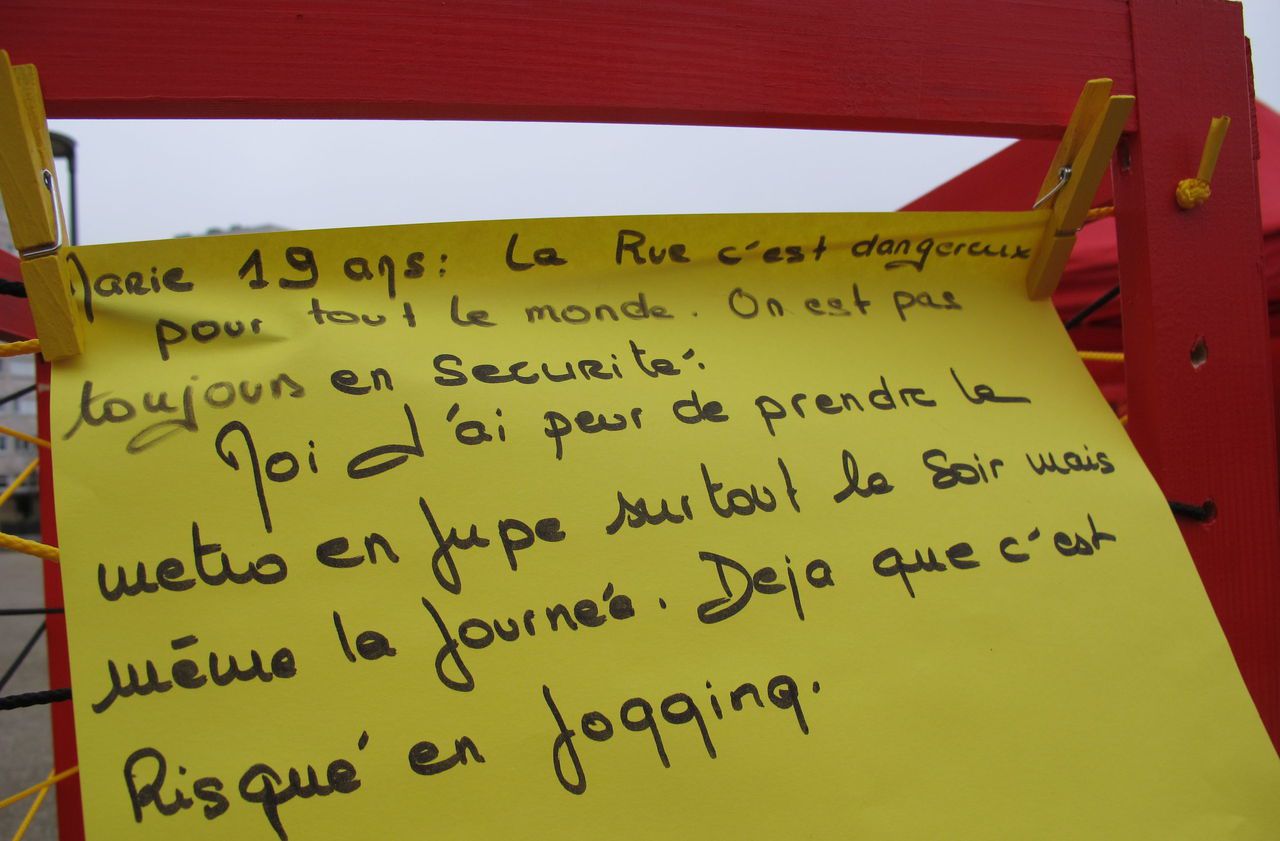 Marie 19 ans: La Rue c'est dangereux
pour tout le monde. On est pas
toujours en securité.
Moi J'ai peur de prendre le
metro en jupe surtout le Soir mais
même la journeé. Deja que c'est
Risqué en Jogging.